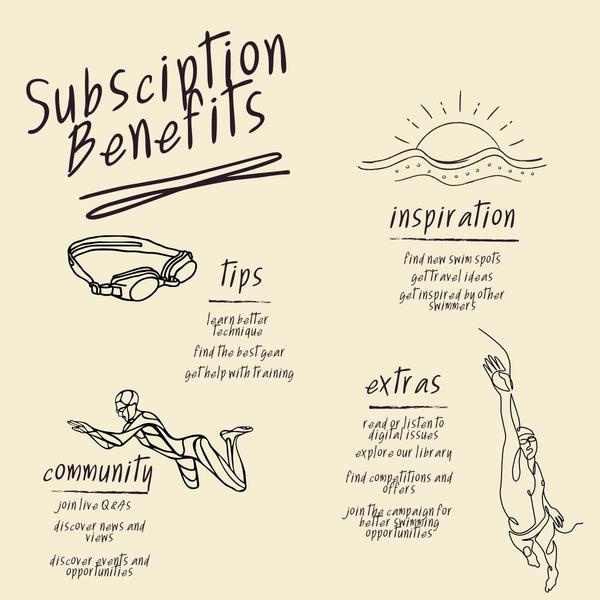 Subsciption
Benefits
inspiration
find new swim spots
get travel ideas
get inspired by other
swimmers
tips
learn better
technique
find the best gear
get help with training
extras
read or listen to
digital issues
explore our library
find competitions and
offers
join the campaign for
better swimming
opportunities
community
join live Q&As
discover news and
views
discover events and
opportunities